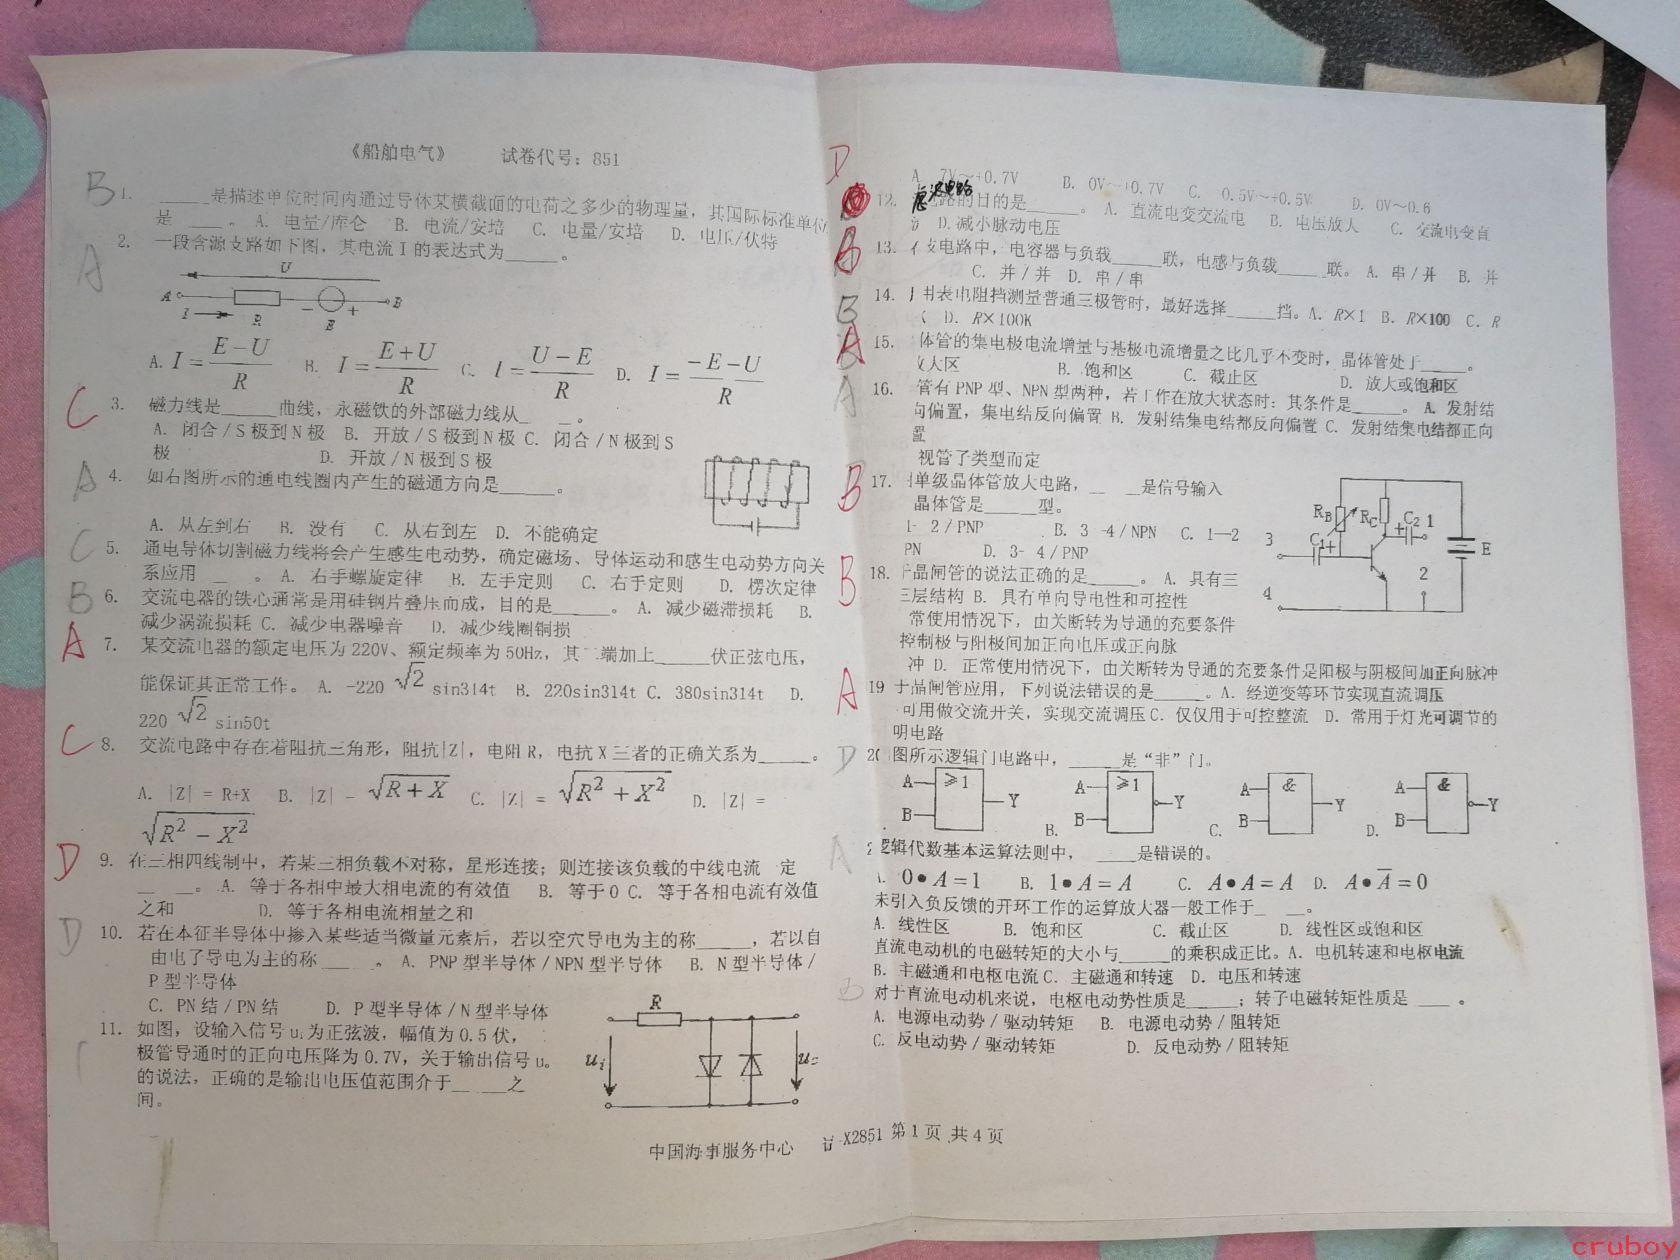 《船舶电气》 试卷代号：851
B 1. ____是描述单位时间内通过导体某横截面的电荷之多少的物理量，其国际标准单位
是____。 A. 电量/库仑 B. 电流/安培 C. 电量/安培 D. 电压/伏特
A 2. 一段含源支路如下图，其电流 I 的表达式为____。
U
A R − E + B
I
A. I = (E−U)/R B. I = (E+U)/R C. I = (U−E)/R D. I = (−E−U)/R
C 3. 磁力线是____曲线，永磁铁的外部磁力线从____。
A. 闭合/S 极到 N 极 B. 开放/S 极到 N 极 C. 闭合/N 极到 S
极 D. 开放/N 极到 S 极
A 4. 如右图所示的通电线圈内产生的磁通方向是____。
A. 从左到右 B. 没有 C. 从右到左 D. 不能确定
C 5. 通电导体切割磁力线将会产生感生电动势，确定磁场、导体运动和感生电动势方向关
系应用____。 A. 右手螺旋定律 B. 左手定则 C. 右手定则 D. 楞次定律
B 6. 交流电器的铁心通常是用硅钢片叠压而成，目的是____。 A. 减少磁滞损耗 B.
减少涡流损耗 C. 减少电器噪音 D. 减少线圈铜损
A 7. 某交流电器的额定电压为 220V、额定频率为 50Hz，其二端加上____伏正弦电压，
能保证其正常工作。 A. -220 √2 sin314t B. 220sin314t C. 380sin314t D.
220 √2 sin50t
C 8. 交流电路中存在着阻抗三角形，阻抗|Z|，电阻 R，电抗 X 三者的正确关系为____。
A. |Z| = R+X B. |Z| = √(R+X) C. |Z| = √(R²+X²) D. |Z| =
√(R²−X²)
D 9. 在三相四线制中，若某三相负载不对称，星形连接；则连接该负载的中线电流一定
____。 A. 等于各相中最大相电流的有效值 B. 等于 0 C. 等于各相电流有效值
之和 D. 等于各相电流相量之和
D 10. 若在本征半导体中掺入某些适当微量元素后，若以空穴导电为主的称____，若以自
由电子导电为主的称____。 A. PNP 型半导体/NPN 型半导体 B. N 型半导体/
P 型半导体
C. PN 结/PN 结 D. P 型半导体/N 型半导体
11. 如图，设输入信号 ui 为正弦波，幅值为 0.5 伏，
极管导通时的正向电压降为 0.7V，关于输出信号 u。
的说法，正确的是输出电压值范围介于____之
间。
R
ui
D
A. 7V～+0.7V B. 0V～+0.7V C. 0.5V～+0.5V D. 0V～0.6
12. 滤波电路 路的目的是____。 A. 直流电变交流电 B. 电压放大 C. 交流电变直
D. 减小脉动电压
B 13. 电路中，电容器与负载____联，电感与负载____联。 A. 串/并 B. 并
C. 并/并 D. 串/串
B 14. 用表电阻挡测量普通三极管时，最好选择____挡。A. R×1 B. R×100 C. R
D. R×100K
A 15. 体管的集电极电流增量与基极电流增量之比几乎不变时，晶体管处于____。
大区 B. 饱和区 C. 截止区 D. 放大或饱和区
A 16. 管有 PNP 型、NPN 型两种，若工作在放大状态时：其条件是____。 A. 发射结
向偏置，集电结反向偏置 B. 发射结集电结都反向偏置 C. 发射结集电结都正向
置
视管子类型而定
B 17. 单级晶体管放大电路，____是信号输入
晶体管是____型。
1- 2/PNP B. 3 -4/NPN C. 1—2
PN D. 3- 4/PNP
RB RC C2 1
3 C1 E
4 2
B 18. 晶闸管的说法正确的是____。 A. 具有三
三层结构 B. 具有单向导电性和可控性
常使用情况下，由关断转为导通的充要条件
控制极与阳极间加正向电压或正向脉
冲 D. 正常使用情况下，由关断转为导通的充要条件是阳极与阴极间加正向脉冲
A 19 于晶闸管应用，下列说法错误的是____。A. 经逆变等环节实现直流调压
可用做交流开关，实现交流调压 C. 仅仅用于可控整流 D. 常用于灯光可调节的
明电路
D 20 图所示逻辑门电路中，____是“非”门。
A B ≥1 Y B. A B ≥1 Y C. A B & Y D. A B & Y
A 逻辑代数基本运算法则中，____是错误的。
0•A=1 B. 1•A=A C. A•A=A D. A•A̅=0
未引入负反馈的开环工作的运算放大器一般工作于____。
A. 线性区 B. 饱和区 C. 截止区 D. 线性区或饱和区
直流电动机的电磁转矩的大小与____的乘积成正比。A. 电机转速和电枢电流
B. 主磁通和电枢电流 C. 主磁通和转速 D. 电压和转速
对于直流电动机来说，电枢电动势性质是____；转子电磁转矩性质是____。
A. 电源电动势/驱动转矩 B. 电源电动势/阻转矩
C. 反电动势/驱动转矩 D. 反电动势/阻转矩
中国海事服务中心 X2851 第 1 页 共 4 页
cruboy